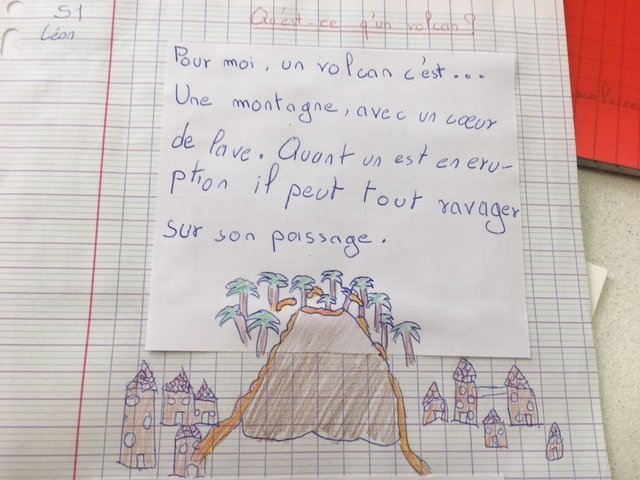 S1
Léon
Qu'est-ce qu'un volcan?
Pour moi, un volcan c'est...
Une montagne, avec un cœur
de lave. Quant un est en eru-
ption il peut tout ravager
sur son passage.